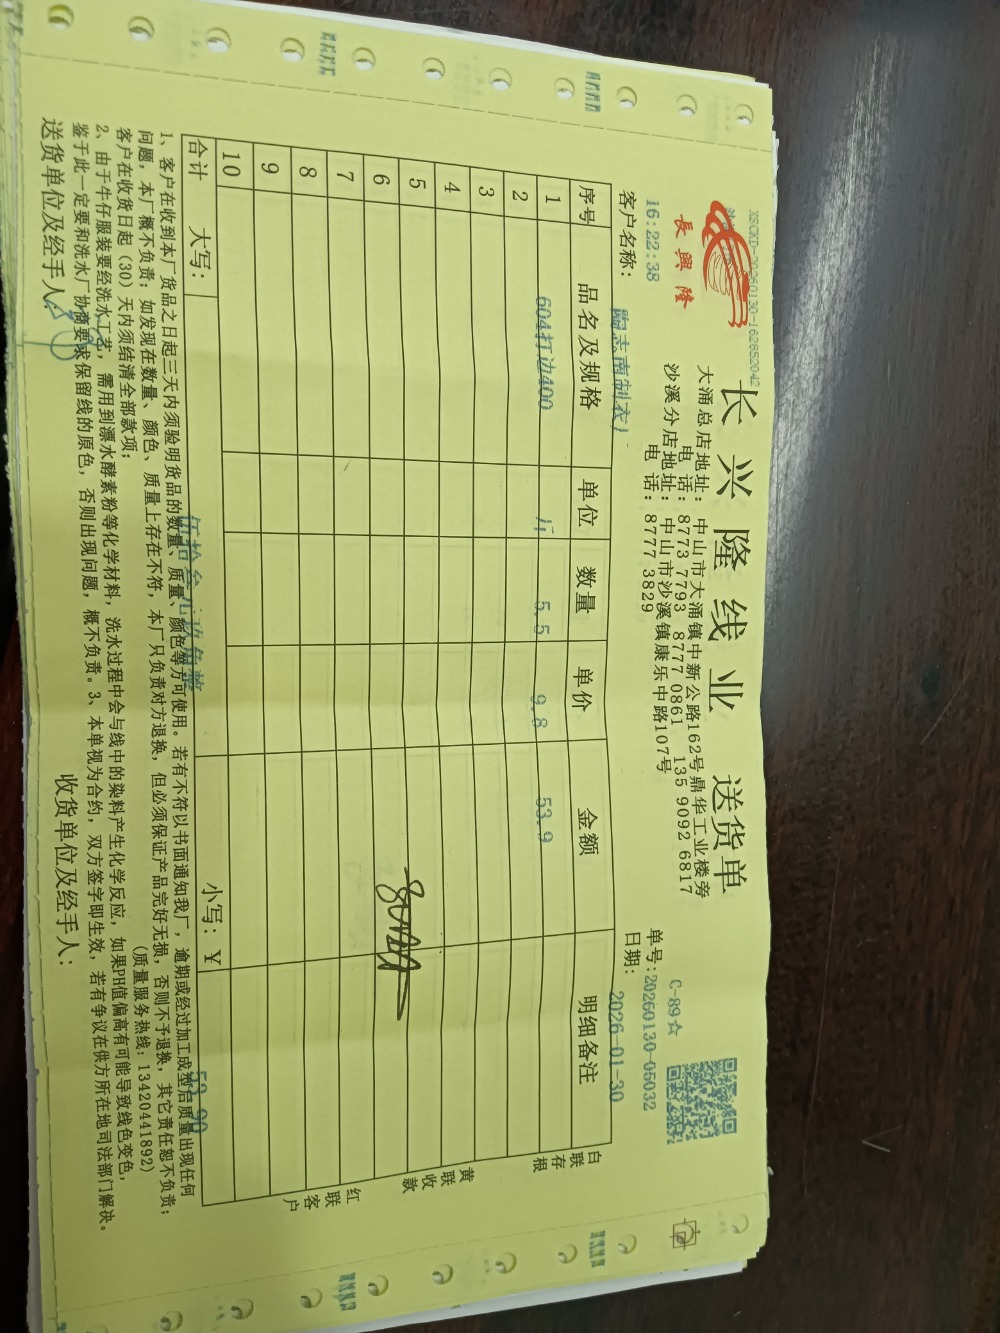 XSCKD-20260130-162852042
長興隆
长兴隆线业 送货单
大涌总店地址：中山市大涌镇中新公路162号鼎华工业楼旁
电 话：8773 7793 8777 0861 135 9092 6817
沙溪分店地址：中山市沙溪镇康乐中路107号
电 话：8777 3829
C-89☆
16:22:38
单号:20260130-05032
客户名称： 陶志南制衣厂
日期： 2026-01-30
序号 品名及规格 单位 数量 单价 金额 明细备注
1 604打边400 斤 5.5 9.8 53.9
2
3
4
5
6
7
8
9
10
合计 大写： 伍拾叁元玖角整 小写：￥ 53.90
白联存根
黄联收款
红联客户
1、客户在收到本厂货品之日起三天内须验明货品的数量、质量、颜色等方可使用。若有不符以书面通知我厂，逾期或经过加工成型后质量出现任何
问题，本厂概不负责；如发现在数量、颜色、质量上存在不符，本厂只负责对方退换，但必须保证产品完好无损，否则不予退换，其它责任恕不负责；
客户在收货日起（30）天内须结清全部款项； （质量服务热线：13420441892）
2、由于牛仔服装要经洗水工艺，需用到漂水酵素粉等化学材料，洗水过程中会与线中的染料产生化学反应，如果PH值偏高有可能导致线色变色，
鉴于此一定要和洗水厂协商要求保留线的原色，否则出现问题，概不负责。3、本单视为合约，双方签字即生效，若有争议在供方所在地司法部门解决。
送货单位及经手人： 收货单位及经手人：